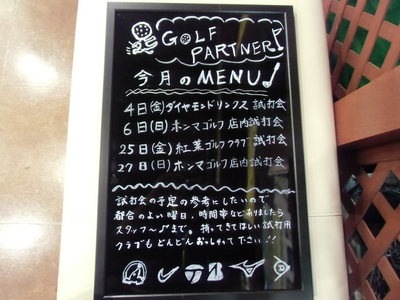 GOLF
PARTNER!
今月のMENU♪
4日(金)ダイヤモンドリンクス 試打会
6日(日)ホンマゴルフ店内試打会
25日(金)紅葉ゴルフクラブ 試打会
27日(日)ホンマゴルフ 店内試打会
試打会の予定の参考にしたいので
都合のよい曜日、時間帯などありましたら
スタッフ〜♪まで。持ってきてほしい試打用
クラブもどんどんおっしゃって下さい!!